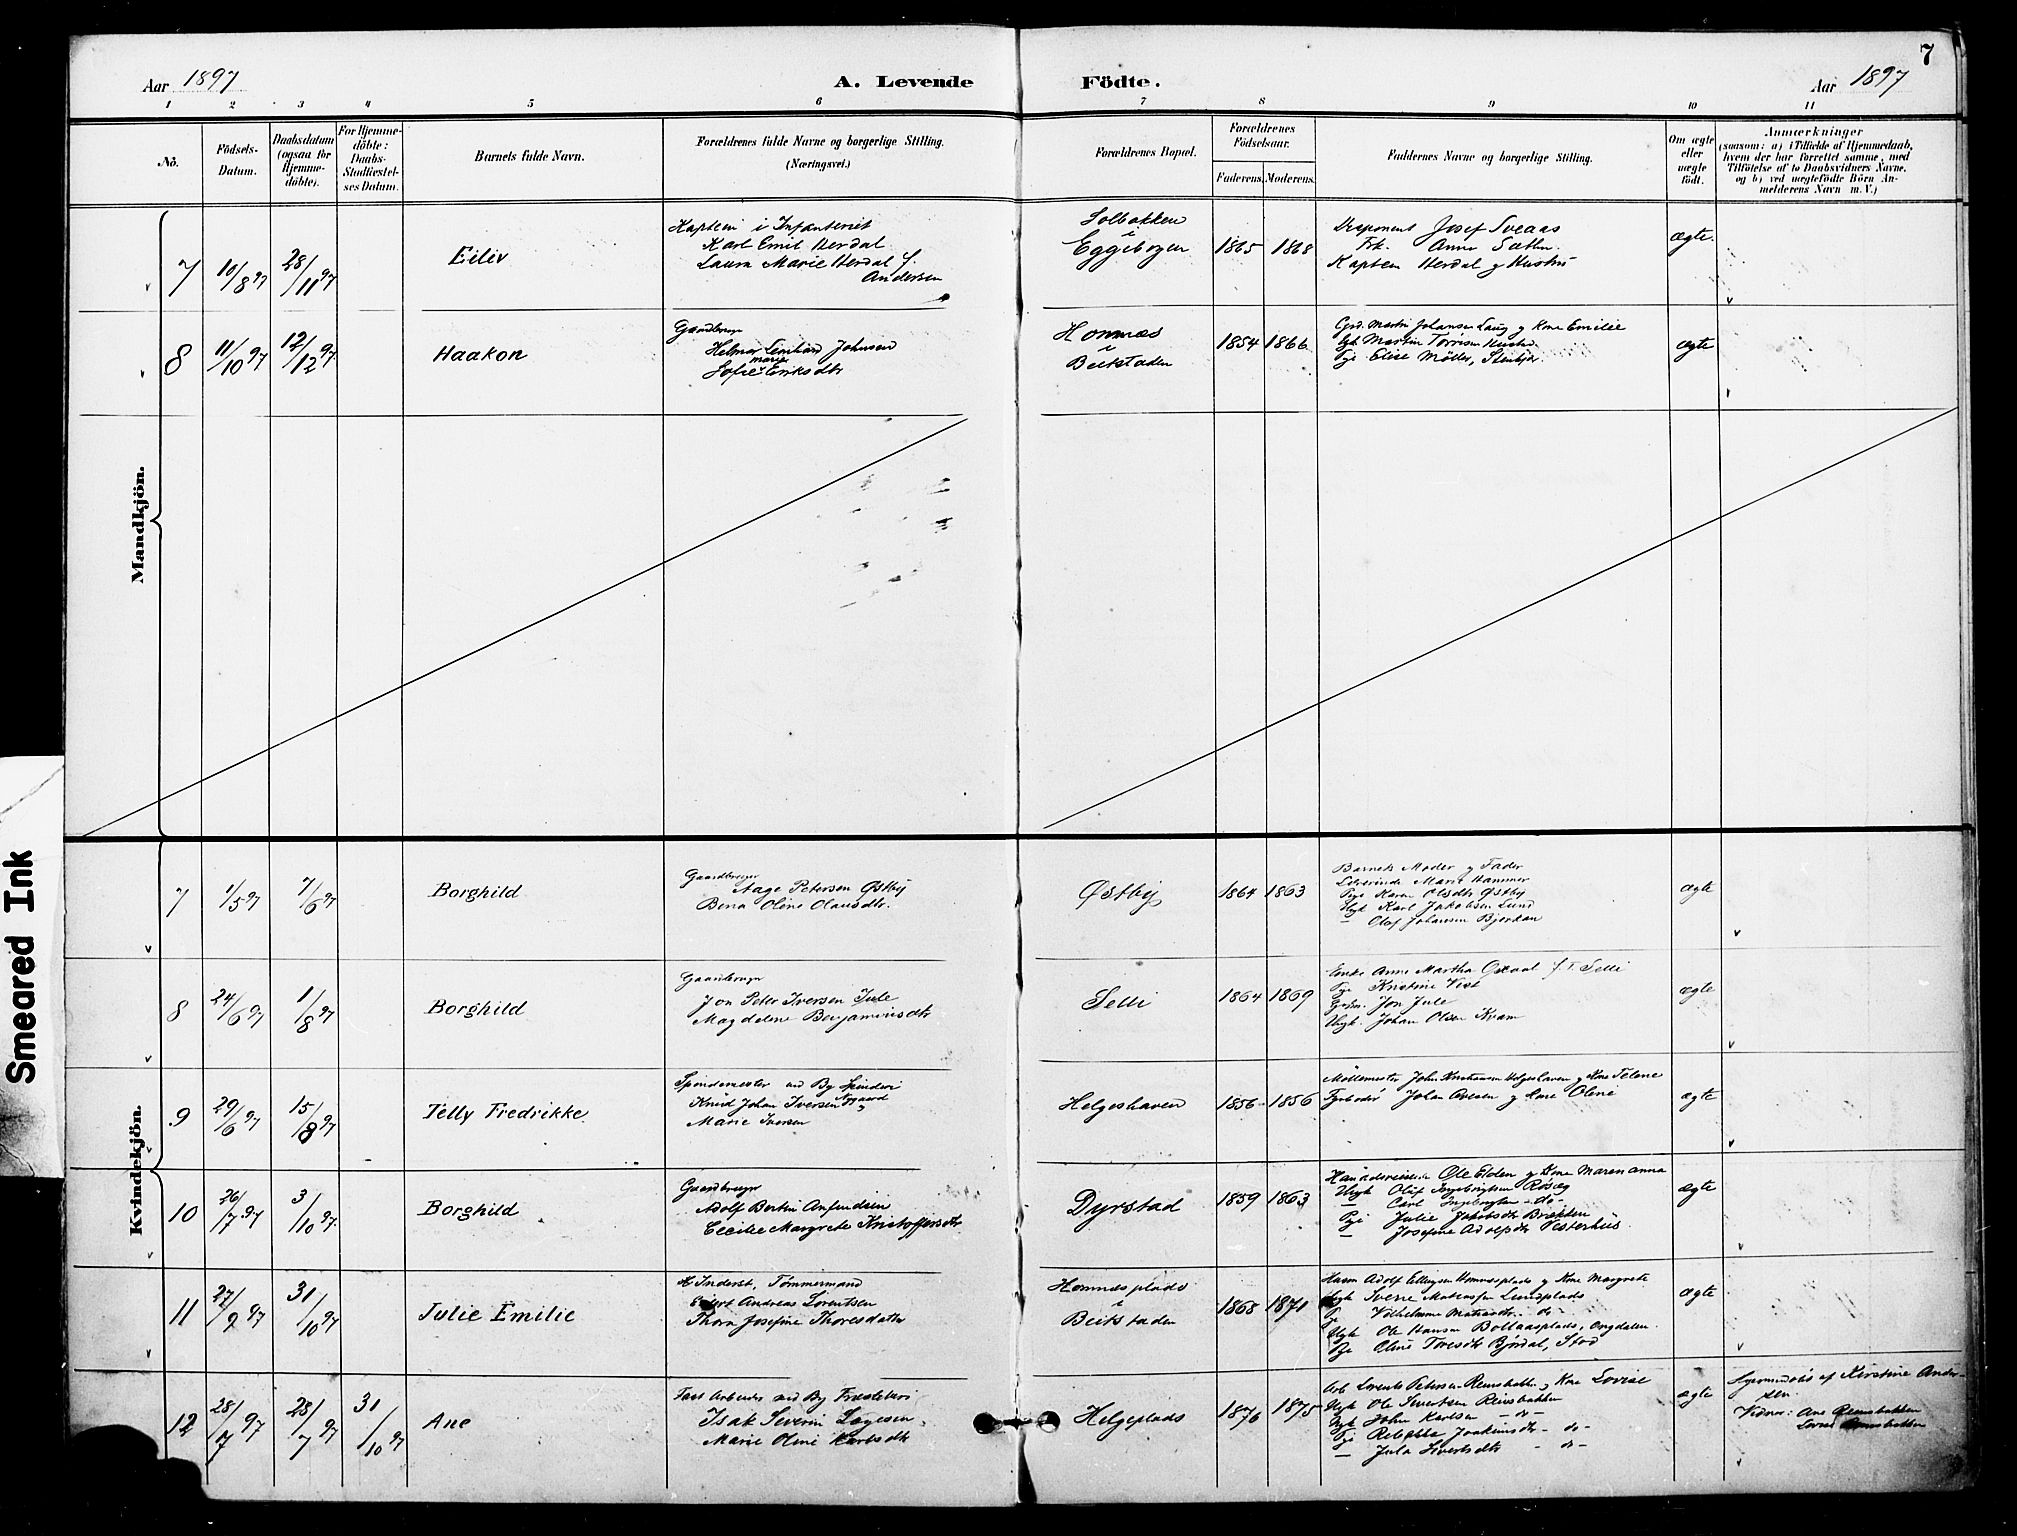 7
Aar 1897
A. Levende
Födte.
Aar 1897
1 2 3 4 5 6 7 8 9 10 11
No.
Födsels-
Datum.
Daabsdatum
(ogsaa for
Hjemme-
döbte).
For Hjemme-
döbte:
Daabs-
Stadfæstel-
ses Datum.
Barnets fulde Navn.
Forældrenes fulde Navne og borgerlige Stilling.
(Næringsvei.)
Forældrenes Bopæl.
Forældrenes
Födselsaar.
Faderens.
Moderens.
Faddernes Navne og borgerlige Stilling.
Om ægte
eller
uægte
födt.
Anmærkninger
(saasom: a) i Tilfælde af Hjemmedaab,
hvem der har forrettet samme, med
Tilföielse af to Daabsvidners Navne.
og b) ved uægtefödte Börn An-
melderens Navn m. V.)
Mandkjön.
7
10/8 97
28/11 97
Eiliv
Kaptein i Infanteriet
Karl Emil Herdal
Laura Marie Herdal f.
Andersen
Solbakken
i
Eggebogen
1865
1868
Disponent Josef Sveaas
Frk. Anna Sæthr.
Kaptein Herdal og Hustru
ægte.
8
11/10 97
12/12 97
Haakon
Gaardbruger
Helmer Leonhard Johnsen
Marie
Sofie Eriksdtr
Homnæs
i
Beitstaden
1854
1866
Grd. Martin Johansen Laug og Kone Emilie
Ugk Martin
Pge Elise Möller, Stenkjær
ægte
Kvindekjön.
7
1/5 97
7/6 97
Borghild
Gaardbruger
Aage Petersen Østby
Bena Oline Olausdtr.
Østby
1864
1863
Barnets Moder og Fader
Lærerinde Marie Hammer
Pge Karen Olsdtr Østby
Ugk Karl Jakobsen Lund
— Olaf Johansen Bjerkan
ægte
8
24/6 97
1/8 97
Borghild
Gaardbruger
Jon Peter Iversen Jule
Magdelene Benjaminsdtr
Selli
1864
1869
Enke Anne Martha Oxaal f. T. Selli
Pge Kristine Vist
Jon Jule
Ungk. Johan Olsen Kvam
ægte
9
29/6 97
15/8 97
Telly Fredrikke
Spindemester ved By Spinderi
Knud Johan Iversen Nygaard
Marie Iversen
Helgeshaven
1856
1856
Möllemester John Kristiansen Helgeshaven og Kone Telene
Fyrböder Johan Ovesen og Kone Oline
ægte
10
26/7 97
3/10 97.
Borghild
Gaardbruger
Adolf Bertin Anfindsen
Cecilie Margrete Kristoffersdtr.
Dyrstad
1859
1863
Handelsreisende Ole Elden og Kone Maren Anna
Ungk Oluf Ingebrigtsen Røsæg
— Carl Ingebrigtsen —do—
Pge Julie Jakobsdtr Brækken
— Josefine Adolfsdtr Vesterhus.
ægte
11
27/9 97
31/10 97
Julie Emilie
Inderst, Tømmermand
Andreas Lorentsen
Thora Josefine Thoresdatter
Homnesplads
i
Beitstaden
1868
1871
Husm Adolf Ellingsen Homnesplads og Kone Margrete
Ugk Sverre Matiassen Lundsplads
P. Vilhelmine Matiasdtr. —do—
Ungk Ole Hansen Bollaasplads, Ongdalen.
Pge Oline Toresdtr Bjørdal, Stod
ægte
12
28/7 97
28/7 97
31/10 97
Ane
Fast Arbeider ved By Træsliberi
Isak Severin Lagesen
Marie Oline Karlsdtr
Helgeplads
1876
1875
Arb Lorents Petersen Reinsbakken og Kone Lovise
Ugk Ole Sivertsen Reinsbakken
Ugk John Karlsen —do—
Pge Rebekka Joakimsdtr —do—
— Jula Sivertsdtr —do—
ægte
Hjemmedöbt af Kirstine Ander-
sen
Vidner: Ane Reinsbakken
Lovise Reinsbakken
Smeared Ink